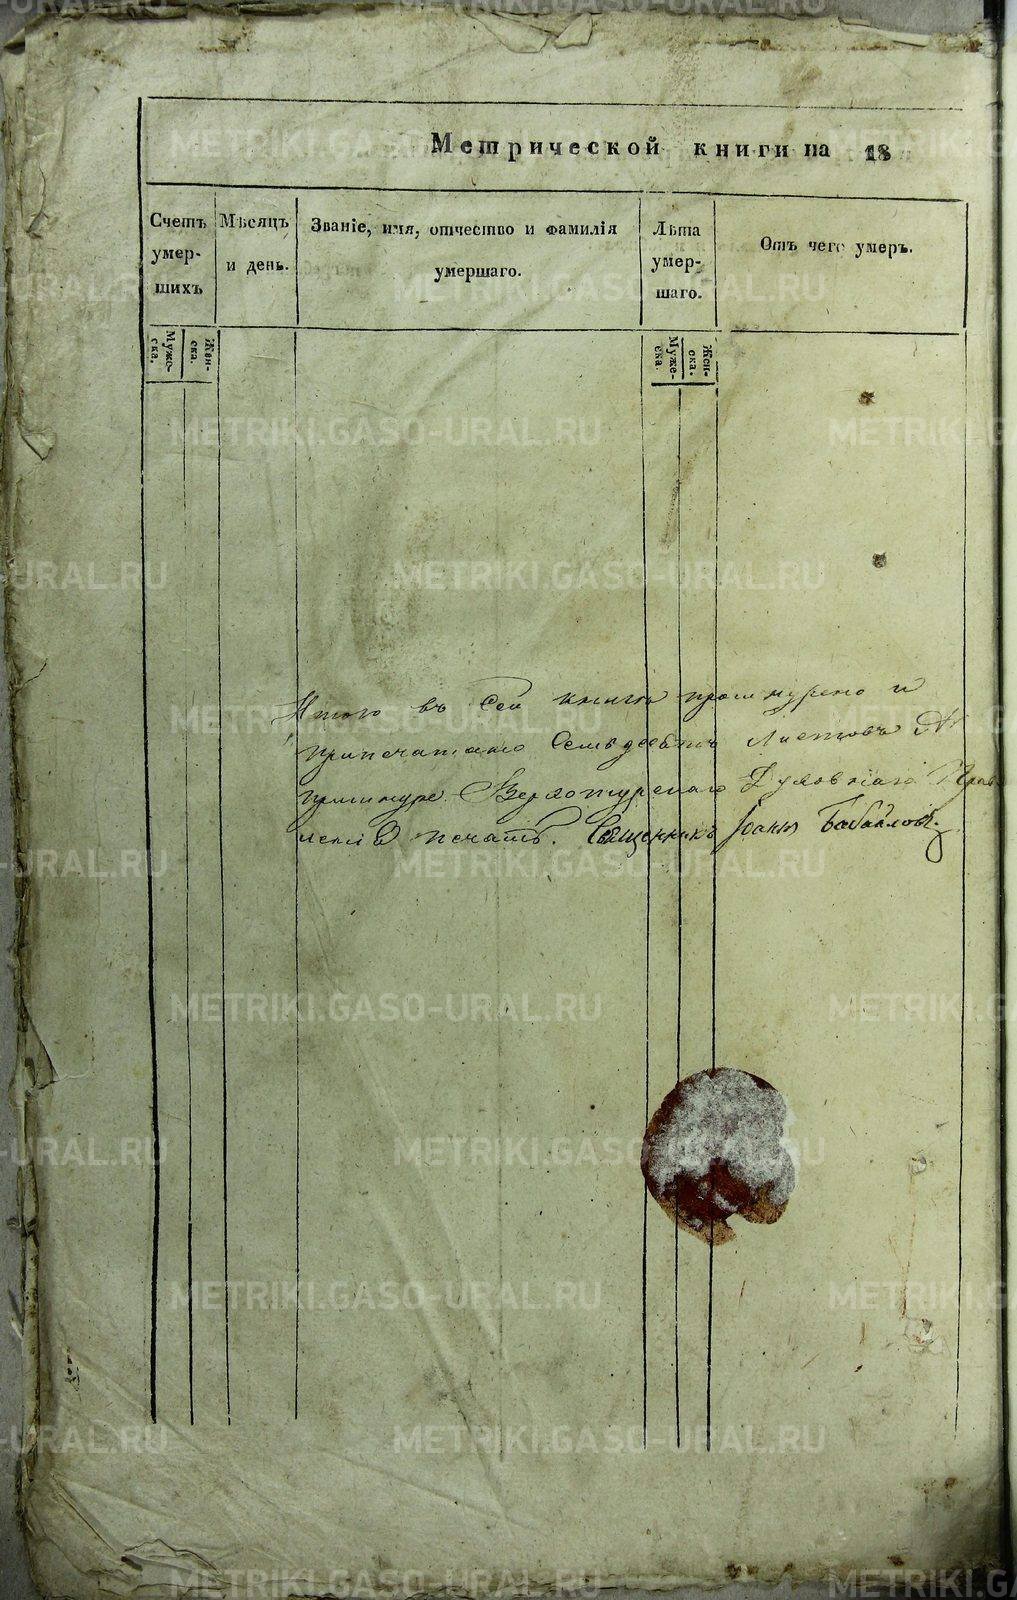 METRIKI.GASO-URAL.RU
Метрической книги на 18
Счетъ умер- шихъ
Мѣсяцъ и день.
Званіе, имя, отчество и фамилія умершаго.
Лѣта умер- шаго.
Отъ чего умеръ.
Муже- ска.
Жен- ска.
Муже- ска.
Жен- ска.
Итого въ сей книгѣ прошнурено и
припечатано Семьдесятъ Листовъ
прошнуре. Верхотурскаго Духовнаго Прав
ленія печать. Священникъ Іоаннъ Бабайловъ.